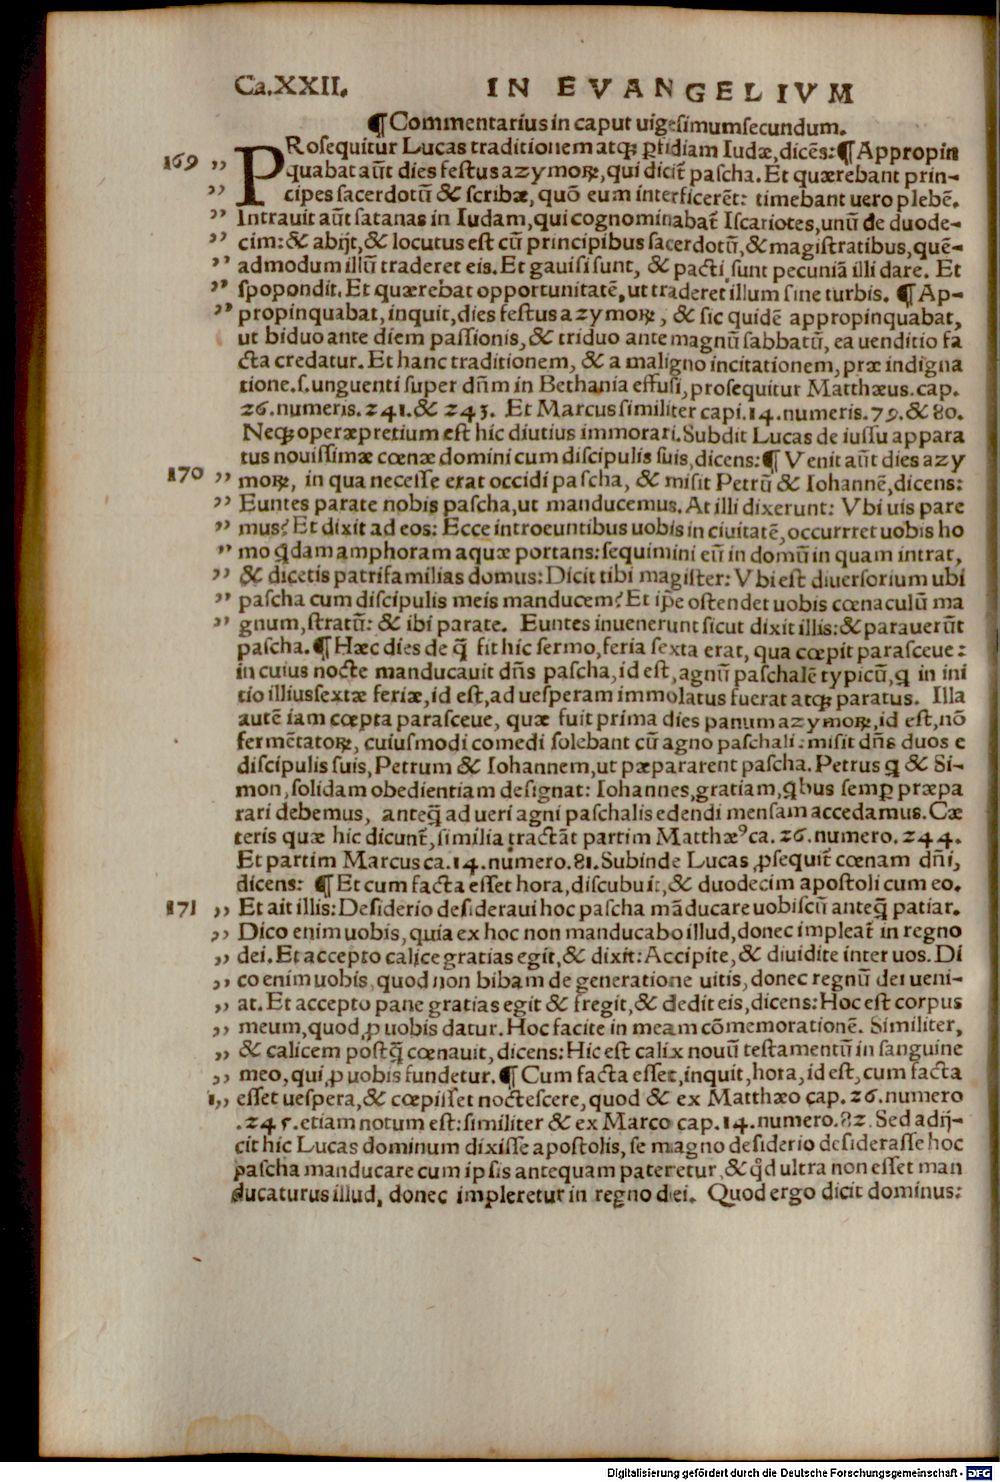 Ca.XXII. IN EVANGELIVM
¶Commentarius in caput uigesimumsecundum.
169 ,, PRosequitur Lucas traditionem atqꝫ ꝑfidiam Iudæ, dicēs:¶Appropin
,, quabat aūt dies festus azymoꝝ, qui dicit̃ pascha. Et quærebant prin-
,, cipes sacerdotū & scribæ, quō eum interficerēt: timebant uero plebē.
,, Intrauit aūt satanas in Iudam, qui cognominabat̃ Iscariotes, unū de duode-
,, cim: & abijt, & locutus est cū principibus sacerdotū, & magistratibus, quē-
,, admodum illū traderet eis. Et gauisi sunt, & pacti sunt pecuniā illi dare. Et
,, spopondit. Et quærebat opportunitatē, ut traderet illum sine turbis. ¶Ap-
,, propinquabat, inquit, dies festus azymoꝝ, & sic quidē appropinquabat,
ut biduo ante diem passionis, & triduo ante magnū sabbatū, ea uenditio fa
cta credatur. Et hanc traditionem, & a maligno incitationem, præ indigna
tione.s.unguenti super dñm in Bethania effusi, prosequitur Matthæus.cap.
26.numeris.241.& 243. Et Marcus similiter capi.14.numeris.79.& 80.
Neqꝫ operæpretium est hic diutius immorari. Subdit Lucas de iussu appara
tus nouissimæ cœnæ domini cum discipulis suis, dicens:¶ Venit aūt dies azy
170 ,, moꝝ, in qua necesse erat occidi pascha, & misit Petrū & Iohannē, dicens:
,, Euntes parate nobis pascha, ut manducemus. At illi dixerunt: Vbi uis pare
,, mus? Et dixit ad eos: Ecce introeuntibus uobis in ciuitatē, occurrret uobis ho
,, mo ꝗdam amphoram aquæ portans: sequimini eū in domū in quam intrat,
,, & dicetis patrifamilias domus: Dicit tibi magister: Vbi est diuersorium ubi
,, pascha cum discipulis meis manducem? Et ip̄e ostendet uobis cœnaculū ma
,, gnum, stratū: & ibi parate. Euntes inuenerunt sicut dixit illis: & parauerūt
pascha.¶Hæc dies de q̄ fit hic sermo, feria sexta erat, qua cœpit parasceue:
in cuius nocte manducauit dñs pascha, id est, agnū paschalē typicū, ꝗ in ini
tio illiussextæ feriæ, id est, ad uesperam immolatus fuerat atqꝫ paratus. Illa
autē iam cœpta parasceue, quæ fuit prima dies panum azymoꝝ, id est, nō
fermētatoꝝ, cuiusmodi comedi solebant cū agno paschali: misit dñs duos e
discipulis suis, Petrum & Iohannem, ut præpararent pascha. Petrus ꝗ & Si-
mon, solidam obedientiam designat: Iohannes, gratiam, ꝗbus semꝑ præpa
rari debemus, anteq̄ ad ueri agni paschalis edendi mensam accedamus. Cæ
teris quæ hic dicunt̃, similia tractāt partim Matthæꝰ ca.26.numero.244.
Et partim Marcus ca.14.numero.81. Subinde Lucas ꝓsequit̃ cœnam dñi,
dicens: ¶Et cum facta esset hora, discubuit, & duodecim apostoli cum eo.
171 ,, Et ait illis: Desiderio desideraui hoc pascha māducare uobiscū anteq̄ patiar.
,, Dico enim uobis, quia ex hoc non manducabo illud, donec impleat̃ in regno
,, dei. Et accepto calice gratias egit, & dixit: Accipite, & diuidite inter uos. Di
,, co enim uobis, quod non bibam de generatione uitis, donec regnū dei ueni-
,, at. Et accepto pane gratias egit & fregit, & dedit eis, dicens: Hoc est corpus
,, meum, quod ꝓ uobis datur. Hoc facite in meam cōmemorationē. Similiter,
,, & calicem postq̄ cœnauit, dicens: Hic est calix nouū testamentū in sanguine
,, meo, qui ꝓ uobis fundetur.¶ Cum facta esset, inquit, hora, id est, cum facta
1,, esset uespera, & cœpisset noctescere, quod & ex Matthæo cap.26.numero
.245.etiam notum est: similiter & ex Marco cap.14.numero.82. Sed adij-
cit hic Lucas dominum dixisse apostolis, se magno desiderio desiderasse hoc
pascha manducare cum ipsis antequam pateretur, & qd̄ ultra non esset man
ducaturus illud, donec impleretur in regno dei. Quod ergo dicit dominus:
Digitalisierung gefördert durch die Deutsche Forschungsgemeinschaft - DFG